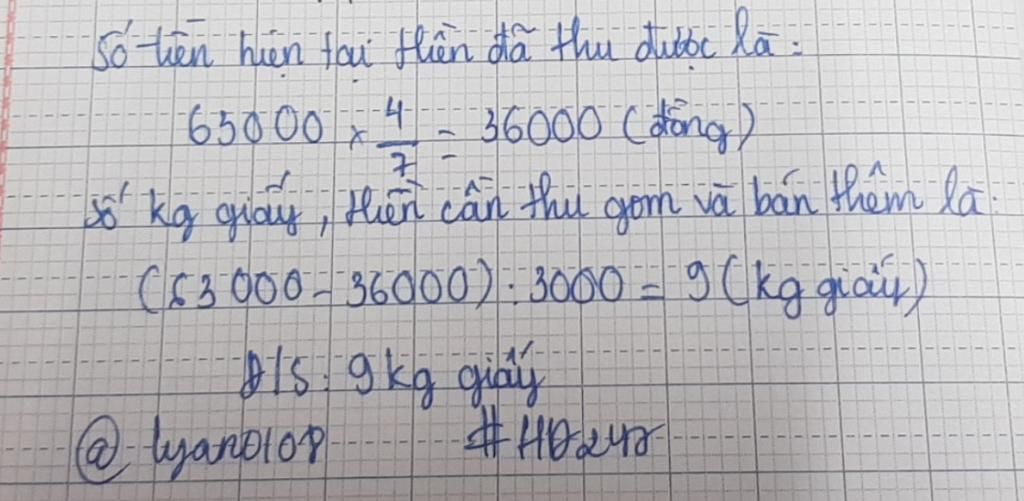 Số tiền hiện tại thiên đã thu được là:
63000 × 4/7 = 36000 (đồng)
Số kg giấy, thiên cần thu gom và bán thêm là:
(63000 - 36000) : 3000 = 9 (kg giấy)
Đ/S: 9kg giấy
@ lyano108